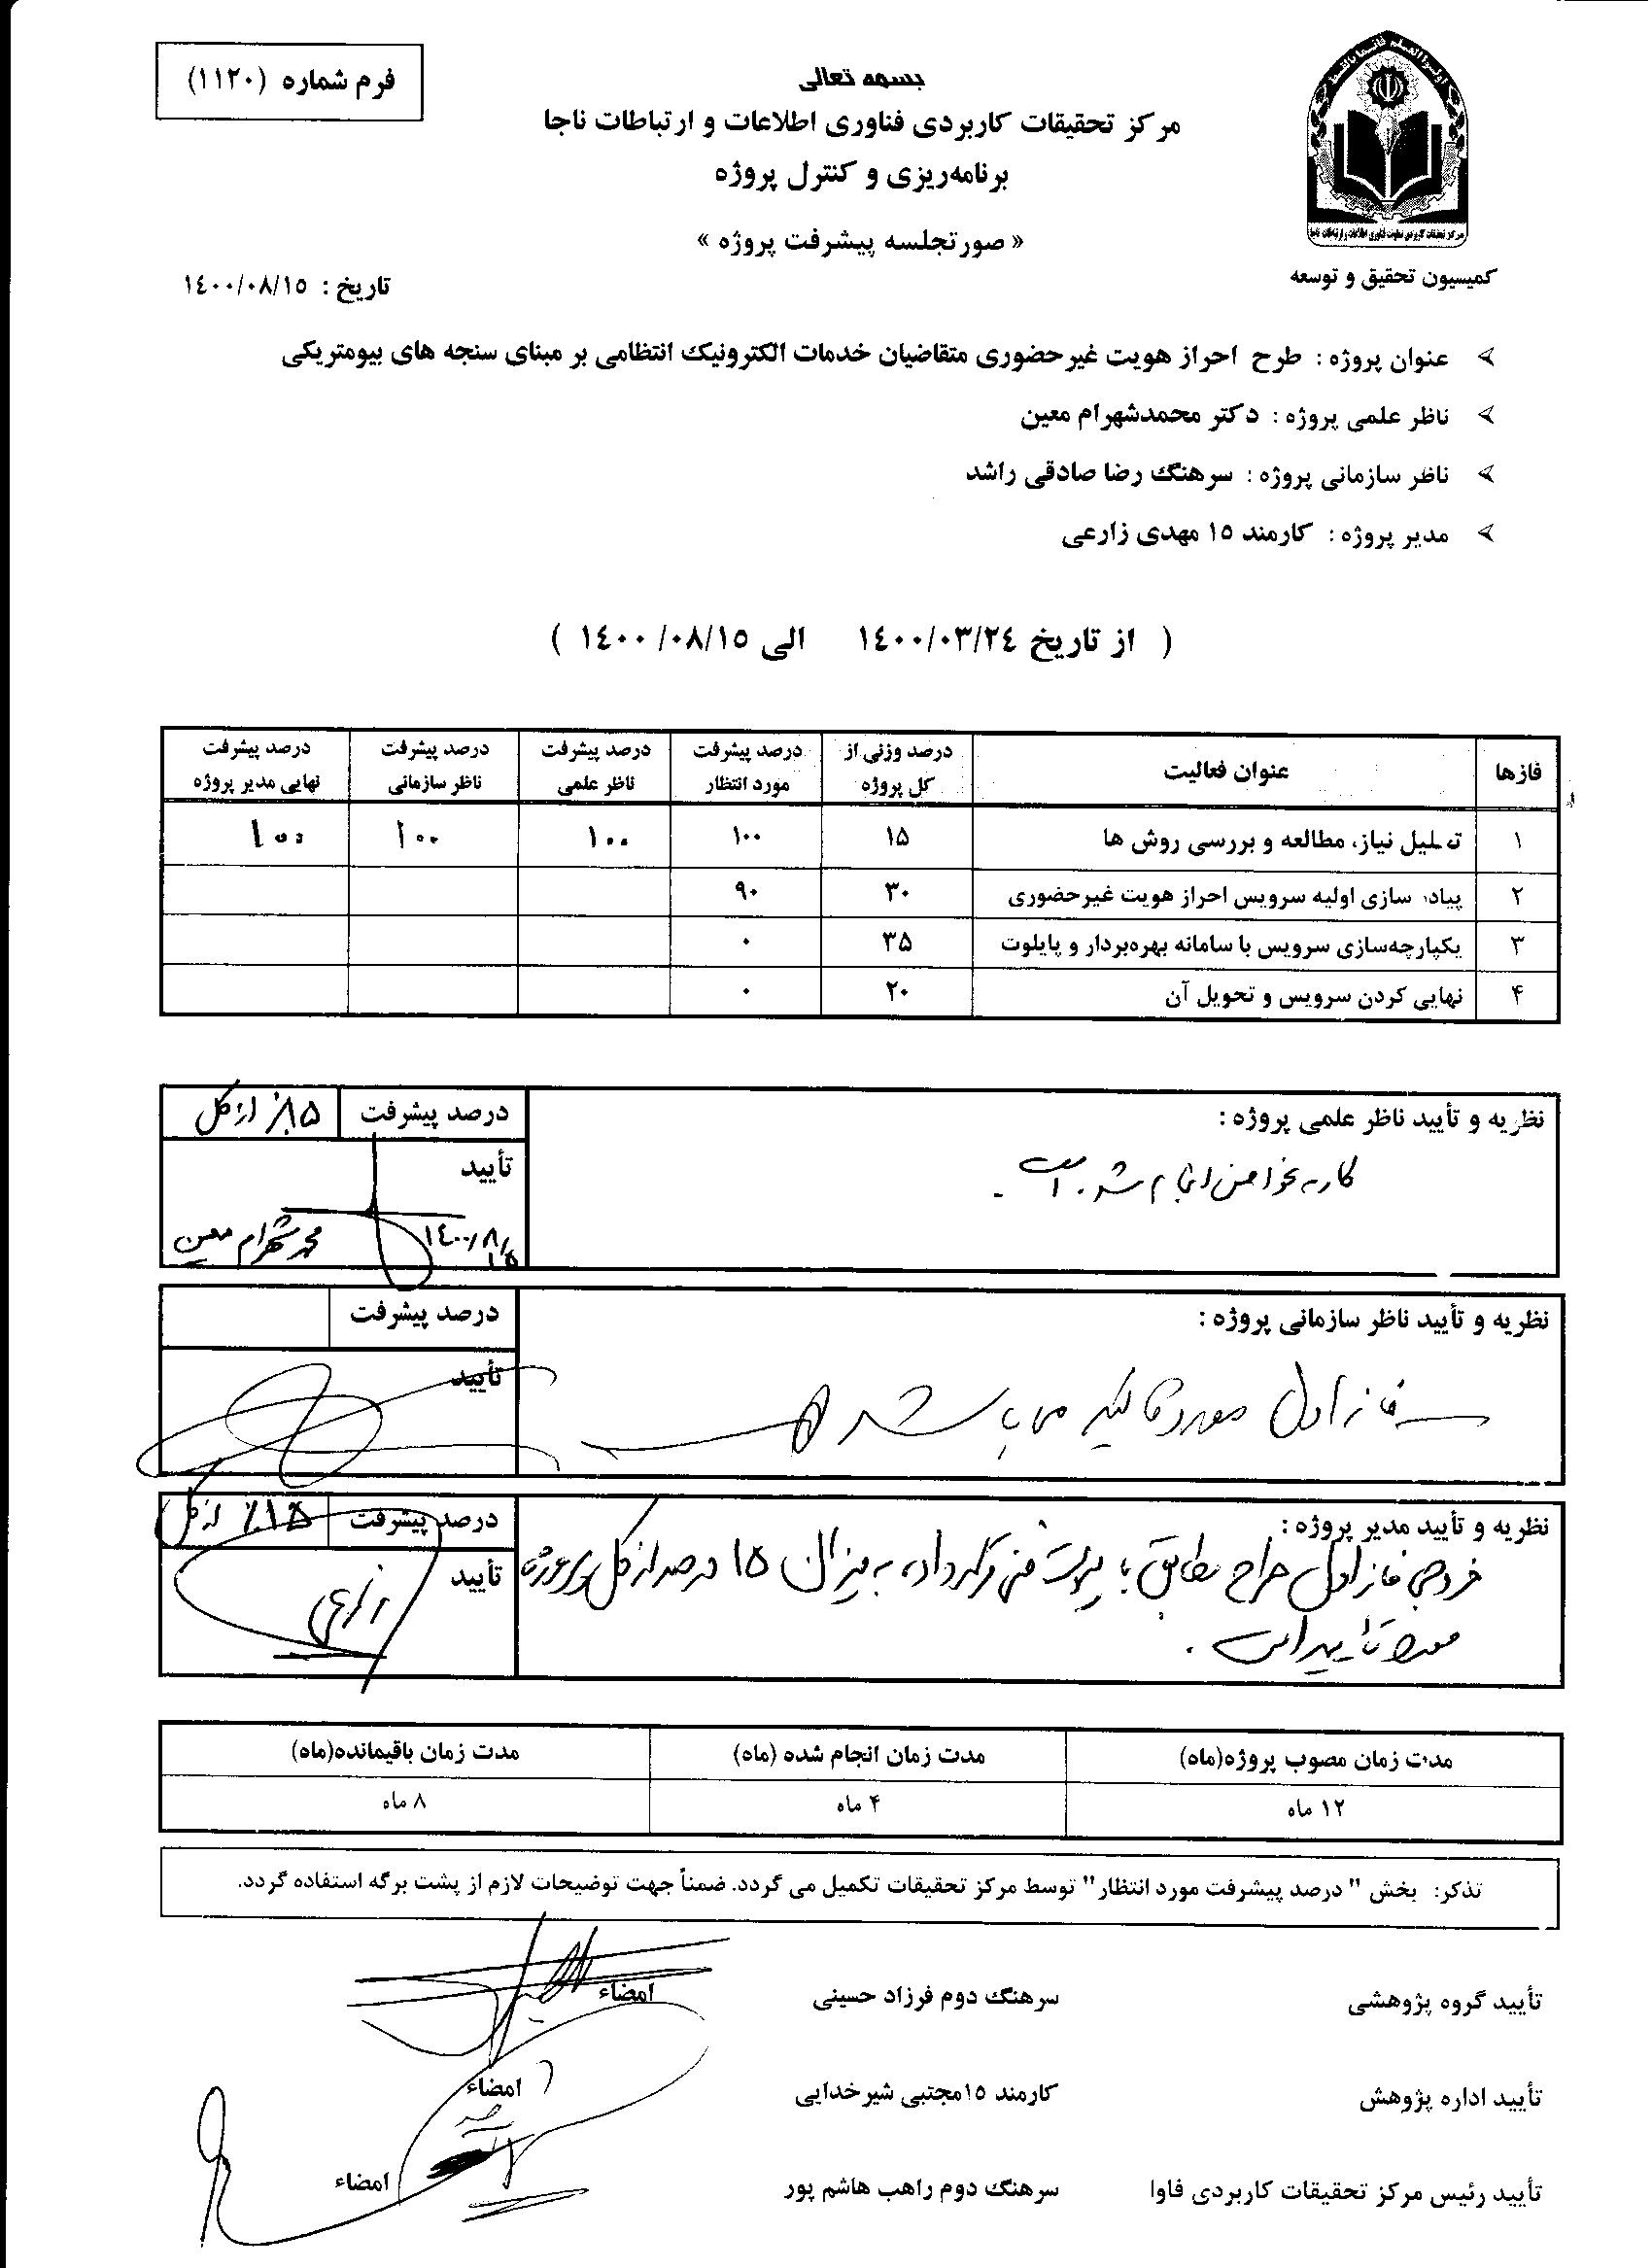 فرم شماره (١١٢٠)
بسمه تعالی
مرکز تحقیقات کاربردی فناوری اطلاعات و ارتباطات ناجا
برنامه‌ریزی و کنترل پروژه
« صورتجلسه پیشرفت پروژه »
کمیسیون تحقیق و توسعه
تاریخ : ١٤٠٠/٠٨/١٥
عنوان پروژه : طرح احراز هویت غیرحضوری متقاضیان خدمات الکترونیک انتظامی بر مبنای سنجه های بیومتریکی
ناظر علمی پروژه : دکتر محمدشهرام معین
ناظر سازمانی پروژه : سرهنگ رضا صادقی راشد
مدیر پروژه : کارمند ١٥ مهدی زارعی
( از تاریخ ١٤٠٠/٠٣/٢٤ الی ١٤٠٠/٠٨/١٥ )
فازها عنوان فعالیت درصد وزنی از کل پروژه درصد پیشرفت مورد انتظار درصد پیشرفت ناظر علمی درصد پیشرفت ناظر سازمانی درصد پیشرفت نهایی مدیر پروژه
۱ تحلیل نیاز، مطالعه و بررسی روش ها ۱۵ ۱۰۰ ۱۰۰ ۱۰۰ ۱۰۰
۲ پیاده سازی اولیه سرویس احراز هویت غیرحضوری ۳۰ ۹۰
۳ یکپارچه‌سازی سرویس با سامانه بهره‌بردار و پایلوت ۳۵ ۰
۴ نهایی کردن سرویس و تحویل آن ۲۰ ۰
نظریه و تأیید ناظر علمی پروژه :
کار به نحو احسن انجام شده است .
درصد پیشرفت
از کل
تأیید
١٤٠٠/٨/١٥
محمد شهرام معین
نظریه و تأیید ناظر سازمانی پروژه :
فاز اول مورد تائید می باشد
درصد پیشرفت
تأیید
نظریه و تأیید مدیر پروژه :
خروجی فاز اول طرح مطابق با پیوست فنی قرارداد، به میزان ۱۵ درصد از کل پروژه
مورد تأیید است .
درصد پیشرفت
٪۱۵ از کل
تأیید
زارعی
مدت زمان مصوب پروژه(ماه) مدت زمان انجام شده (ماه) مدت زمان باقیمانده(ماه)
۱۲ ماه ۴ ماه ۸ ماه
تذکر: بخش " درصد پیشرفت مورد انتظار" توسط مرکز تحقیقات تکمیل می گردد. ضمناً جهت توضیحات لازم از پشت برگه استفاده گردد.
تأیید گروه پژوهشی سرهنگ دوم فرزاد حسینی امضاء
تأیید اداره پژوهش کارمند ١٥مجتبی شیرخدایی امضاء
تأیید رئیس مرکز تحقیقات کاربردی فاوا سرهنگ دوم راهب هاشم پور امضاء